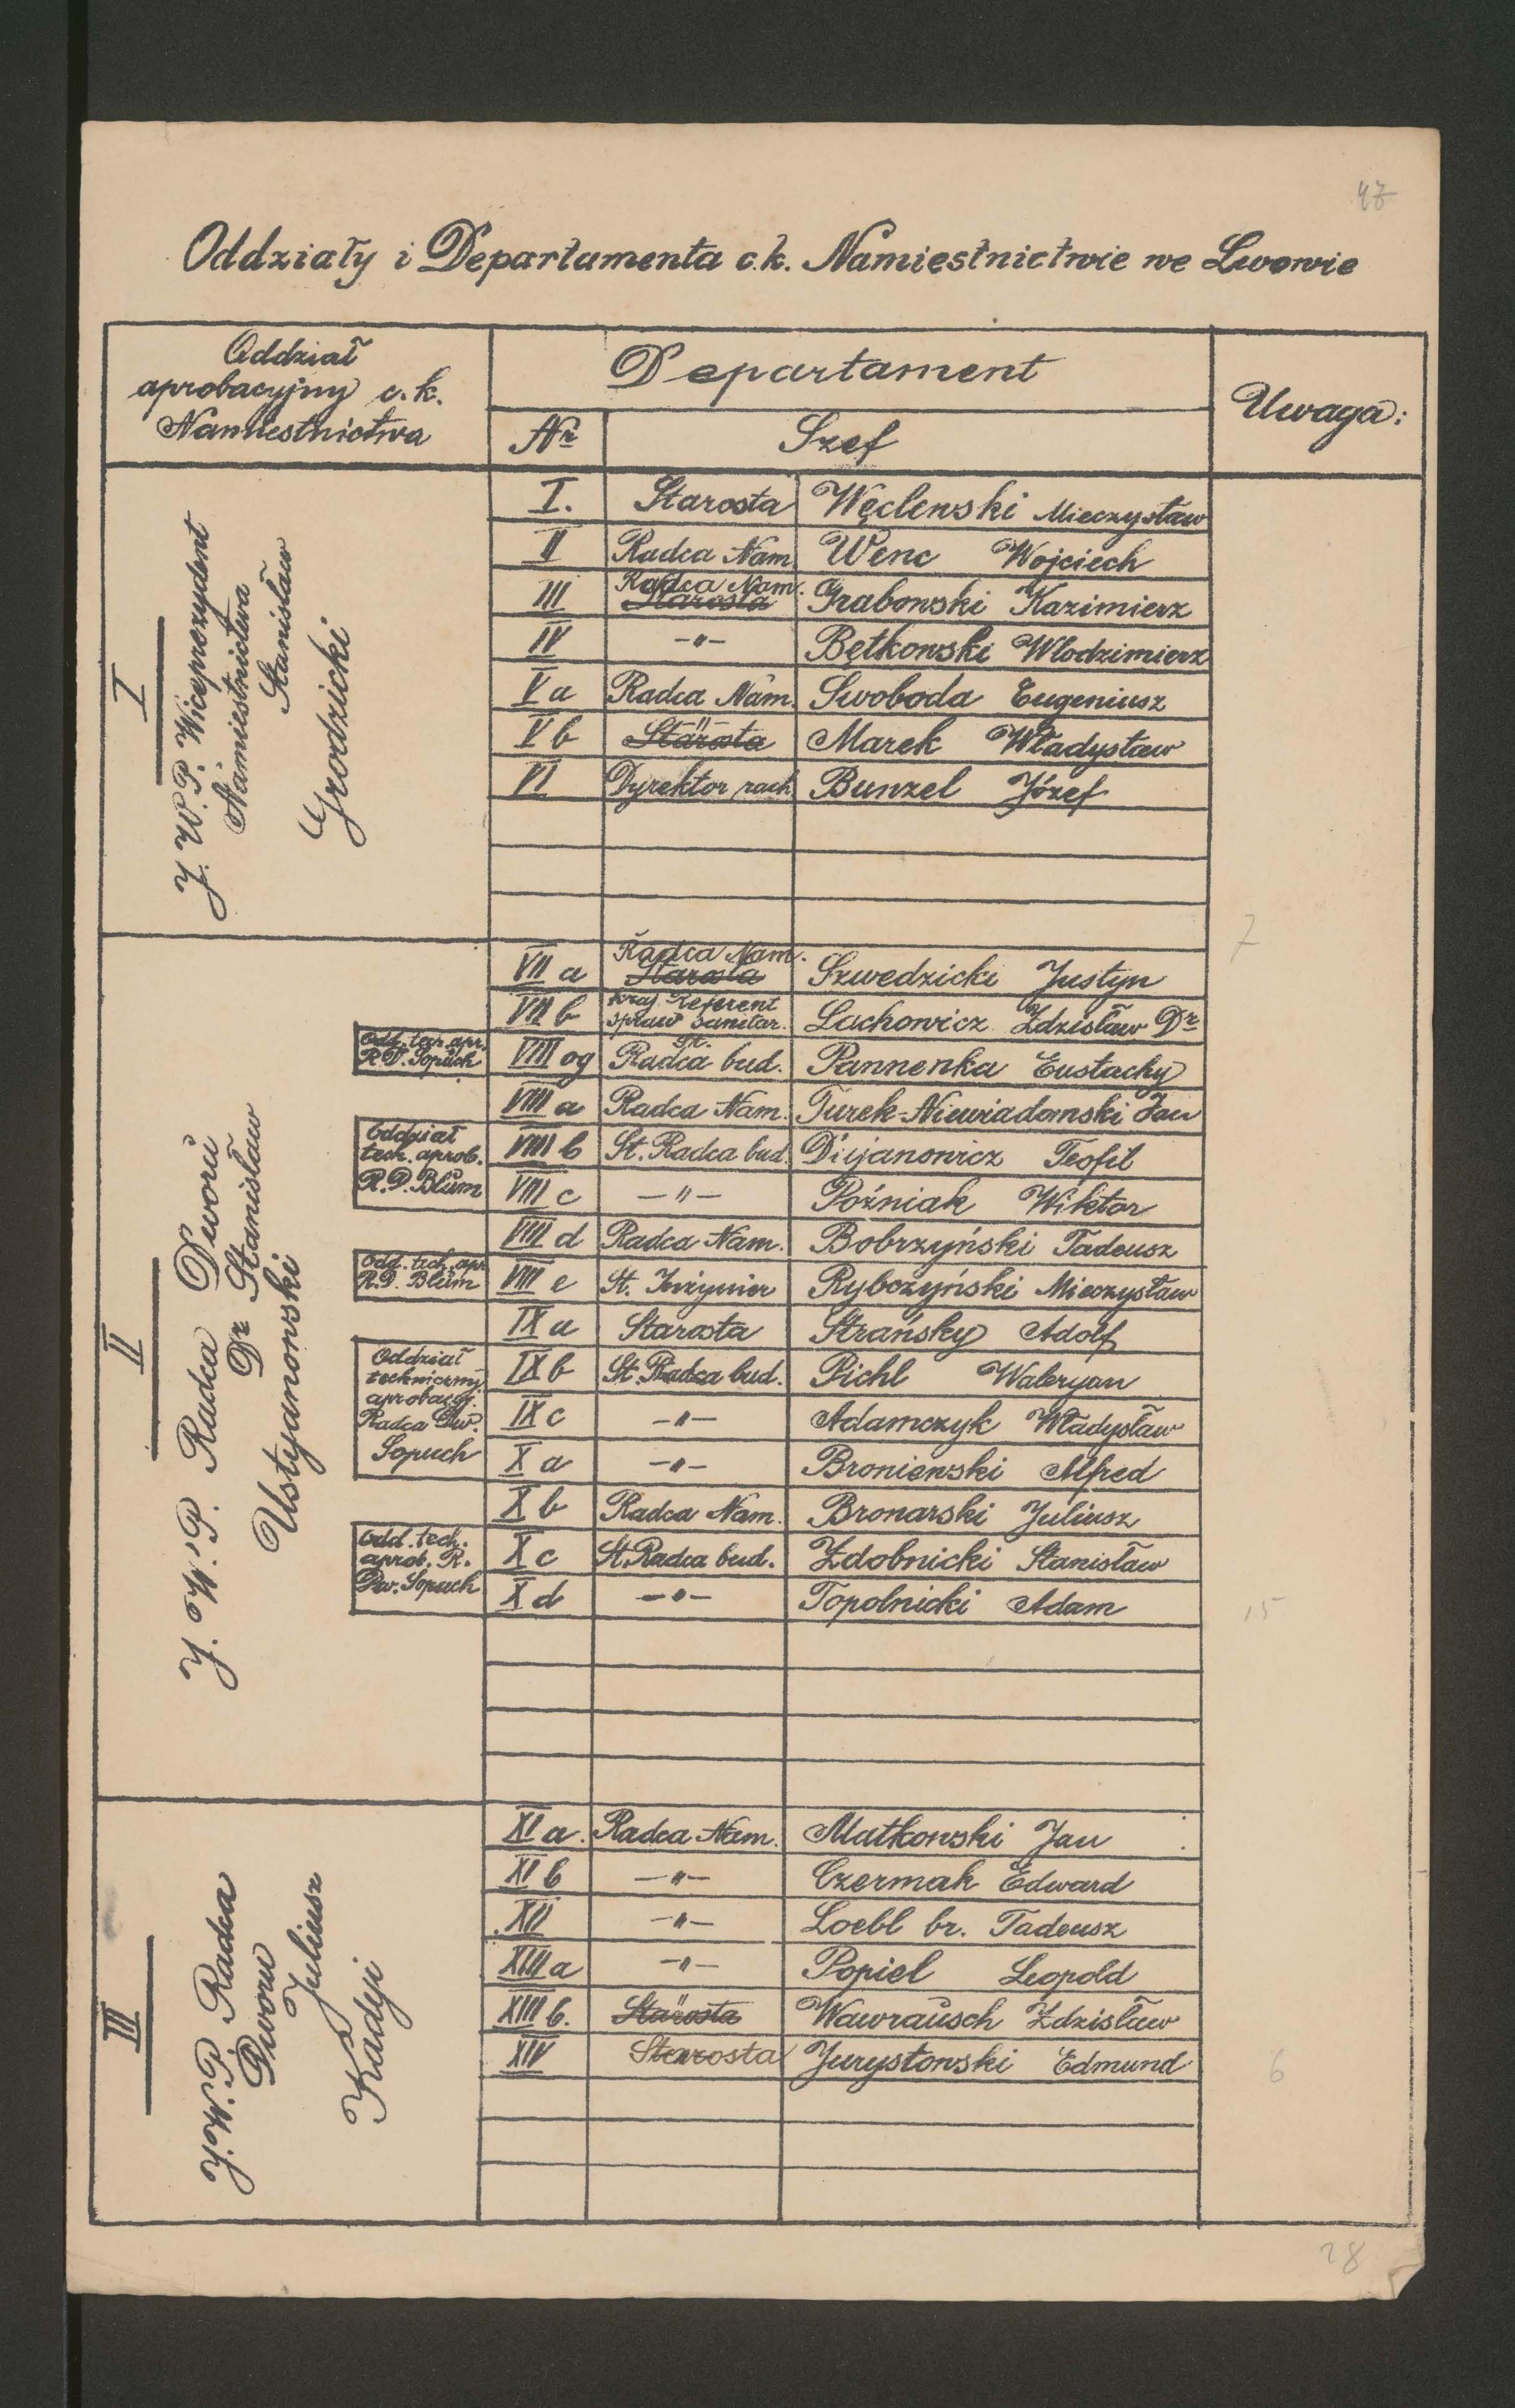 47
Oddziały i Departamenta c.k. Namiestnictwie we Lwowie
Oddział
aprobacyjny c.k.
Namiestnictwa
Departament
Nr Szef
Uwaga:
I
J. W. P. Wiceprezydent
Namiestnictwa
Stanisław
Grodzicki
I. Starosta Węclewski Mieczysław
II Radca Nam. Wenc Wojciech
Radca Nam.
III Starosta Grabowski Kazimierz
IV -"- Bętkowski Włodzimierz
V a Radca Nam. Swoboda Eugeniusz
-"-
V b Starosta Marek Władysław
VI Dyrektor rach. Bunzel Józef
7
II
J. W. P. Radca Dworu
Dr Stanisław
Ustyanowski
Radca Nam.
VII a Starosta Szwedzicki Justyn
VII b Kraj. Referent
spraw sanitar. Lachowicz Zdzisław Dr
Odd. tech. apr.
R.D. Sopuch
St.
VIII og Radca bud. Pannenka Eustachy
VIII a Radca Nam. Turek-Niewiadomski Jan
Oddział
tech. aprob.
R.D. Blum
VIII b St. Radca bud. Dujanowicz Teofil
VIII c -"- Poźniak Wiktor
VIII d Radca Nam. Bobrzyński Tadeusz
Odd. tech. apr.
R.D. Blum
VIII e St. Inżynier Rybczyński Mieczysław
IX a Starosta Strańsky Adolf
Oddział
techniczny
aprobacyj.
Radca Dw.
Sopuch
IX b St. Radca bud. Pichl Waleryan
IX c -"- Adamczyk Władysław
X a -"- Broniewski Alfred
X b Radca Nam. Bronarski Juliusz
Odd. tech.
aprob. R.
Dw. Sopuch
X c St. Radca bud. Zdobnicki Stanisław
X d -"- Topolnicki Adam
15
III
J. W. P. Radca
Dworu
Juliusz
Kadyi
XI a. Radca Nam. Matkowski Jan
XI b -"- Czermak Edward
XII -"- Loebl br. Tadeusz
XIII a -"- Popiel Leopold
XIII b. Starosta Wawrausch Zdzisław
XIV Starosta Jurystowski Edmund
6
28